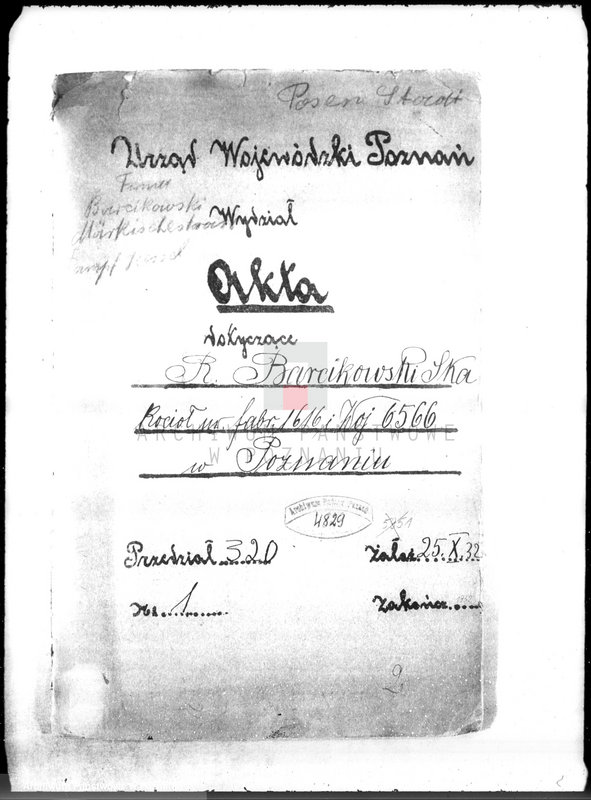 Posen Stadt
Urząd Wojewódzki Poznań
Firma
Barcikowski
Märkischestrass
Wydział
Akta
dotyczące
R. Barcikowski Ska
Kocioł nr. fabr. 1616 i Woj 6566
ARCHIWUM PAŃSTWOWE
W POZNANIU
w Poznaniu
Archiwum Państ. Poznań
4829
5851
Przedział 320
Założ. 25.X.32
Nr. 1
Zakończ.
2